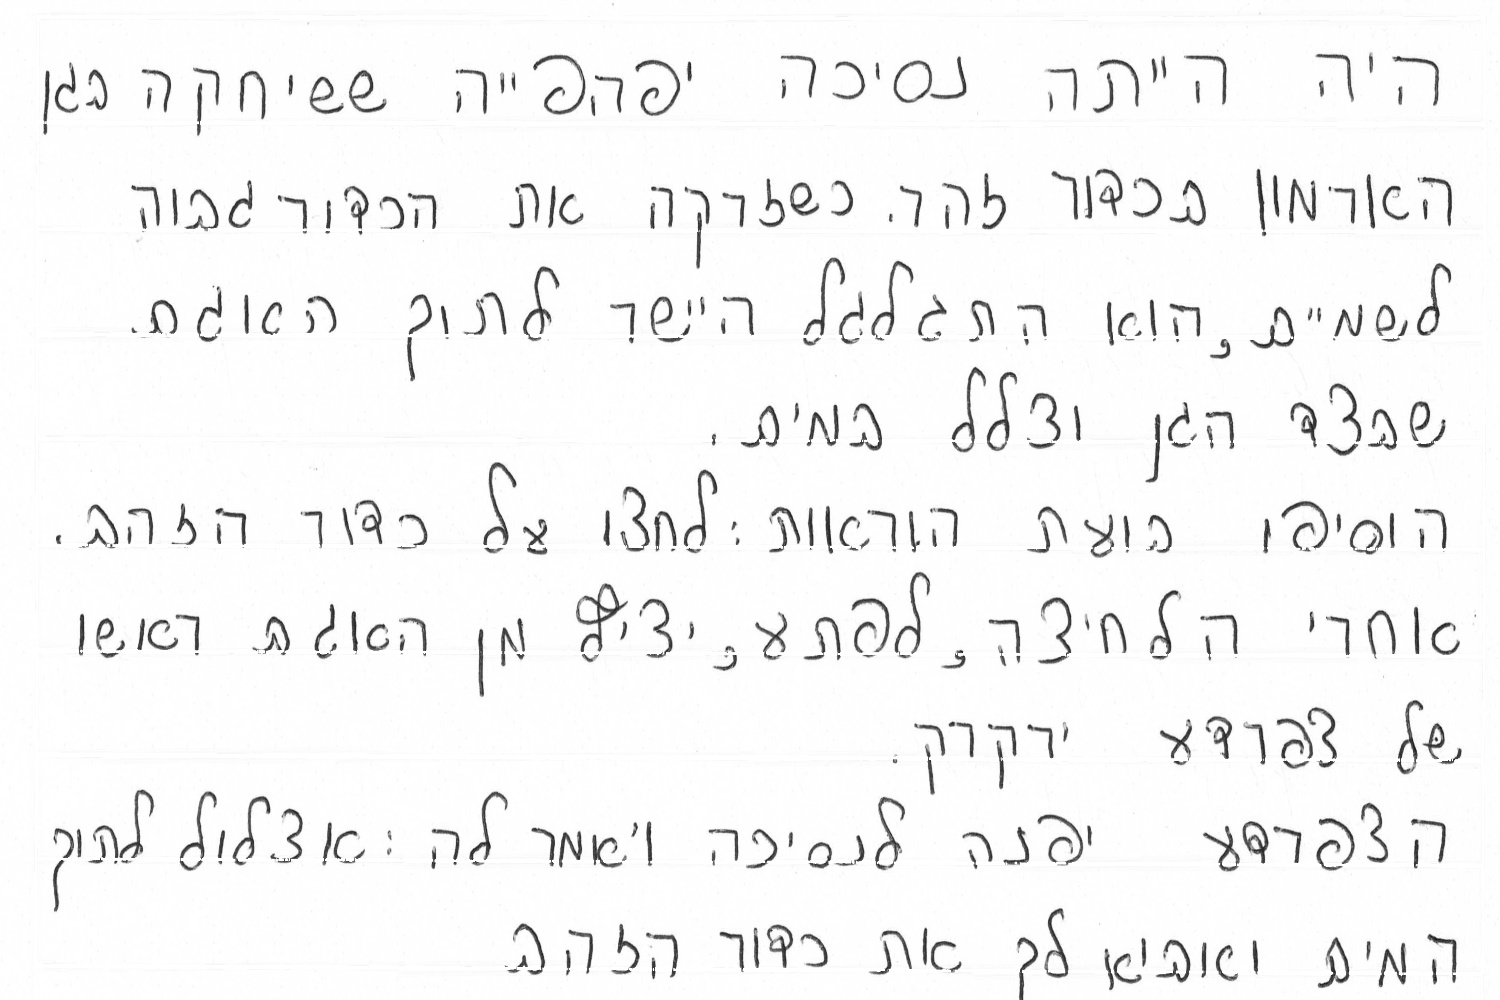 היה הייתה נסיכה יפהפייה ששיחקה בגן
הארמון בכדור זהב. כשזרקה את הכדור גבוה
לשמיים, הוא התגלגל היישר לתוך האגם.
שבצד הגן וצלל במים.
הוסיפו בועת הוראות: לחצו על כדור הזהב.
אחרי הלחיצה, לפתע, יציץ מן האגם ראשו
של צפרדע ירקרק.
הצפרדע יפנה לנסיכה ויאמר לה: אצלול לתוך
המים ואביא לך את כדור הזהב